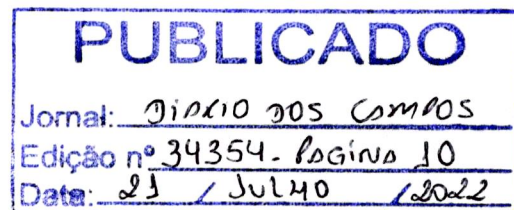 PUBLICADO
Jornal: DIARIO DOS CAMPOS
Edição nº 34354 - PAGINA 10
Data: 21 / JULHO / 2022